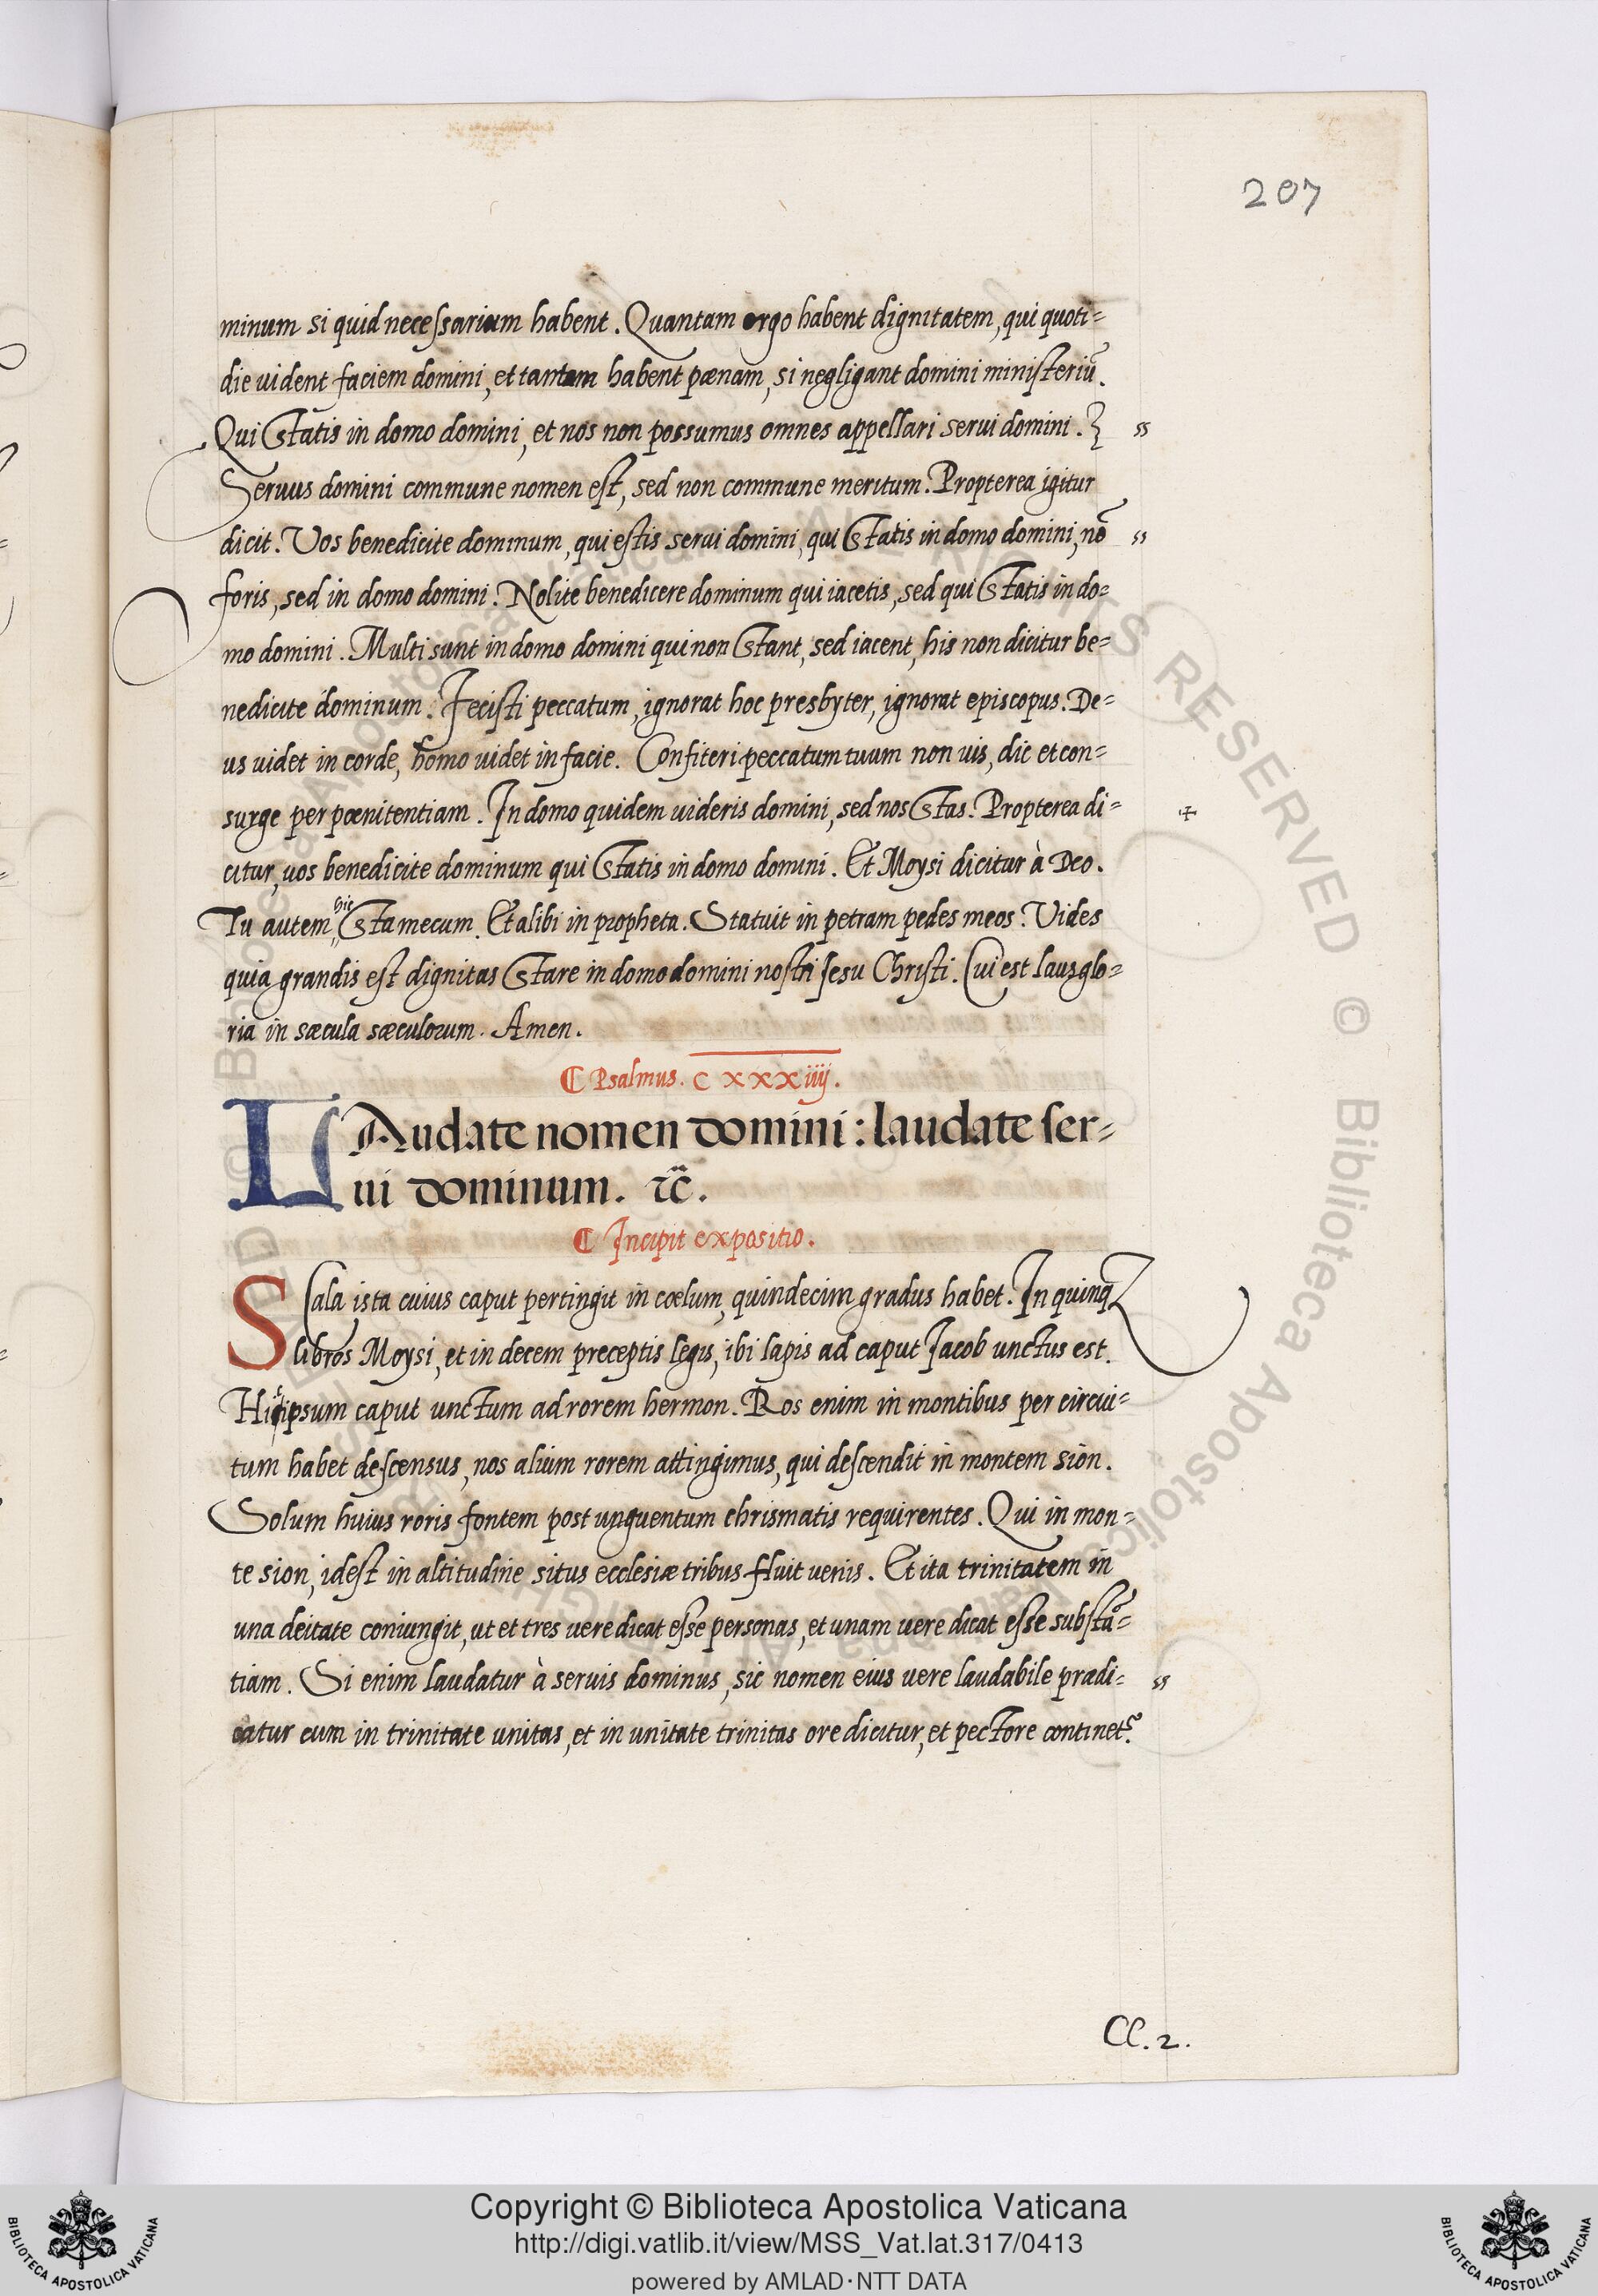 207
minum si quid necessarium habent. Quantam ergo habent dignitatem, qui quoti=
die uident faciem domini, et tantam habent pœnam, si negligant domini ministeriū.
Qui statis in domo domini, et nos non possumus omnes appellari serui domini. ss
Seruus domini commune nomen est, sed non commune meritum. Propterea igitur
dicit. Vos benedicite dominum, qui estis serui domini, qui statis in domo domini, nō ss
foris, sed in domo domini. Nolite benedicere dominum qui iacetis, sed qui statis in do=
mo domini. Multi sunt in domo domini qui non stant, sed iacent, his non dicitur be=
nedicite dominum. Fecisti peccatum, ignorat hoc presbyter, ignorat episcopus. De=
us uidet in corde, homo uidet in facie. Confiteri peccatum tuum non uis, dic et con=
surge per pœnitentiam. In domo quidem uideris domini, sed nos stas. Propterea di=
citur, uos benedicite dominum qui statis in domo domini. Et Moysi dicitur à Deo.
hic
Tu autem sta mecum. Et alibi in propheta. Statuit in petram pedes meos. Vides
quia grandis est dignitas stare in domo domini nostri Jesu Christi. Cui est laus glo=
ria in sæcula sæculorum. Amen.
¶ Psalmus. CXXXiiij.
LAudate nomen domini: laudate ser=
ui dominum. ⁊c̃.
¶ Incipit expositio.
Scala ista cuius caput pertingit in cœlum, quindecim gradus habet. In quinq
libros Moysi, et in decem preceptis legis, ibi lapis ad caput Jacob unctus est.
ipsum caput unctum ad rorem hermon. Ros enim in montibus per circui=
tum habet descensus, nos alium rorem attingimus, qui descendit in montem sion.
Solum huius roris fontem post unguentum chrismatis requirentes. Qui in mon=
te sion, idest in altitudine situs ecclesiæ tribus fluit uenis. Et ita trinitatem in
una deitate coniungit, ut et tres uere dicat esse personas, et unam uere dicat esse substā=
tiam. Si enim laudatur à seruis dominus, sic nomen eius uere laudabile prædi= ss
catur cum in trinitate unitas, et in unitate trinitas ore dicitur, et pectore continet᷑.
CC. 2.
Copyright © Biblioteca Apostolica Vaticana
http://digi.vatlib.it/view/MSS_Vat.lat.317/0413
powered by AMLAD·NTT DATA
BIBLIOTECA APOSTOLICA VATICANA
BIBLIOTECA APOSTOLICA VATICANA